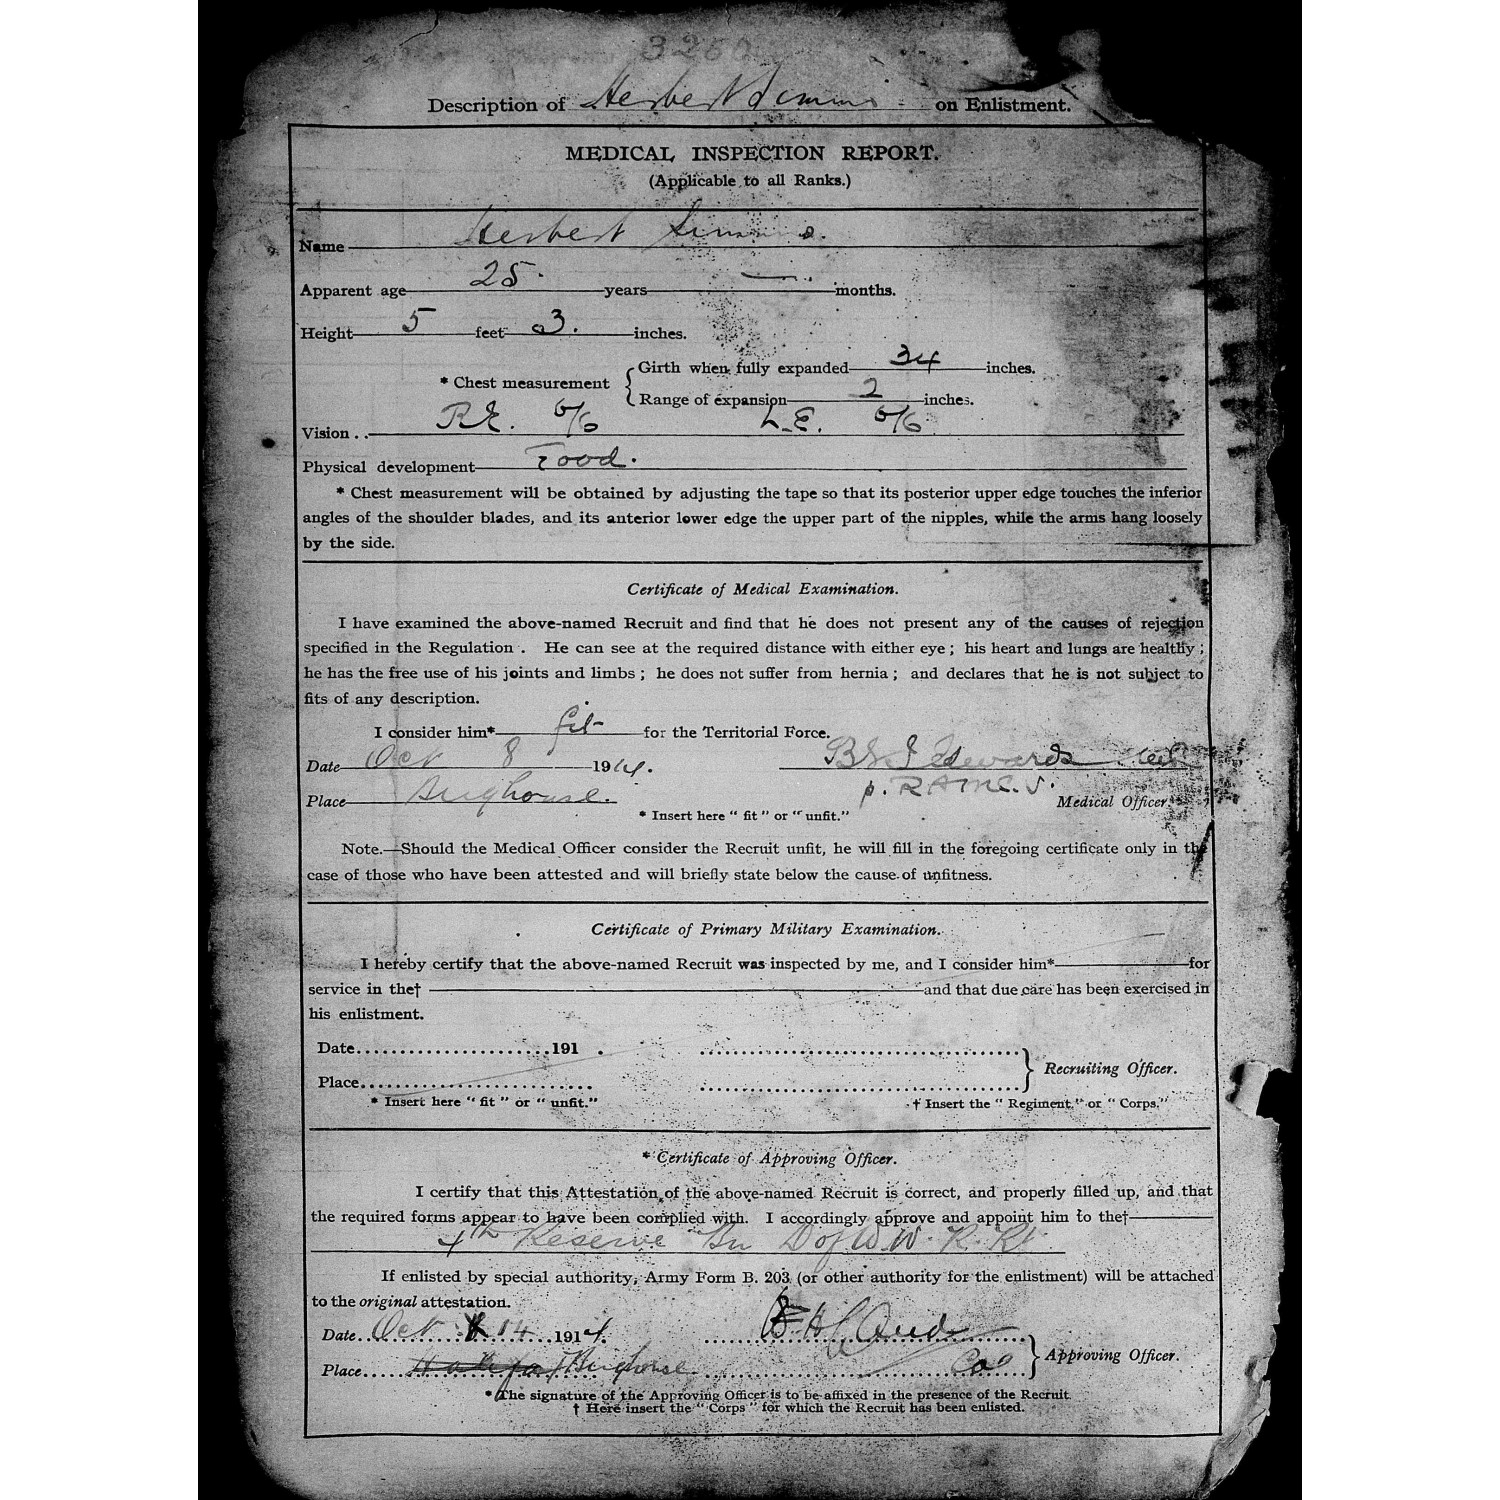 3260
Description of Herbert Simms on Enlistment.
MEDICAL INSPECTION REPORT.
(Applicable to all Ranks.)
Name Herbert Simms.
Apparent age 25 years — months.
Height 5 feet 3. inches.
* Chest measurement { Girth when fully expanded 34 inches.
Range of expansion 2 inches.
Vision . . R.E. 6/6 L.E. 6/6
Physical development Good.
* Chest measurement will be obtained by adjusting the tape so that its posterior upper edge touches the inferior
angles of the shoulder blades, and its anterior lower edge the upper part of the nipples, while the arms hang loosely
by the side.
Certificate of Medical Examination.
I have examined the above-named Recruit and find that he does not present any of the causes of rejection
specified in the Regulation . He can see at the required distance with either eye ; his heart and lungs are healthy ;
he has the free use of his joints and limbs ; he does not suffer from hernia ; and declares that he is not subject to
fits of any description.
I consider him* fit for the Territorial Force.
Date Oct 8 1914. Edwards
Place Brighouse. R.A.M.C. Medical Officer.
* Insert here " fit " or " unfit."
Note.—Should the Medical Officer consider the Recruit unfit, he will fill in the foregoing certificate only in the
case of those who have been attested and will briefly state below the cause of unfitness.
Certificate of Primary Military Examination.
I hereby certify that the above-named Recruit was inspected by me, and I consider him* for
service in the† and that due care has been exercised in
his enlistment.
Date 191 .
Place } Recruiting Officer.
* Insert here " fit " or " unfit." † Insert the " Regiment," or " Corps."
* Certificate of Approving Officer.
I certify that this Attestation of the above-named Recruit is correct, and properly filled up, and that
the required forms appear to have been complied with. I accordingly approve and appoint him to the†
4th Reserve Bn D of W W. R. Rt
If enlisted by special authority, Army Form B. 203 (or other authority for the enlistment) will be attached
to the original attestation.
Date Oct 14 1914.
Place Halifax Brighouse Col } Approving Officer.
* The signature of the Approving Officer is to be affixed in the presence of the Recruit.
† Here insert the " Corps " for which the Recruit has been enlisted.